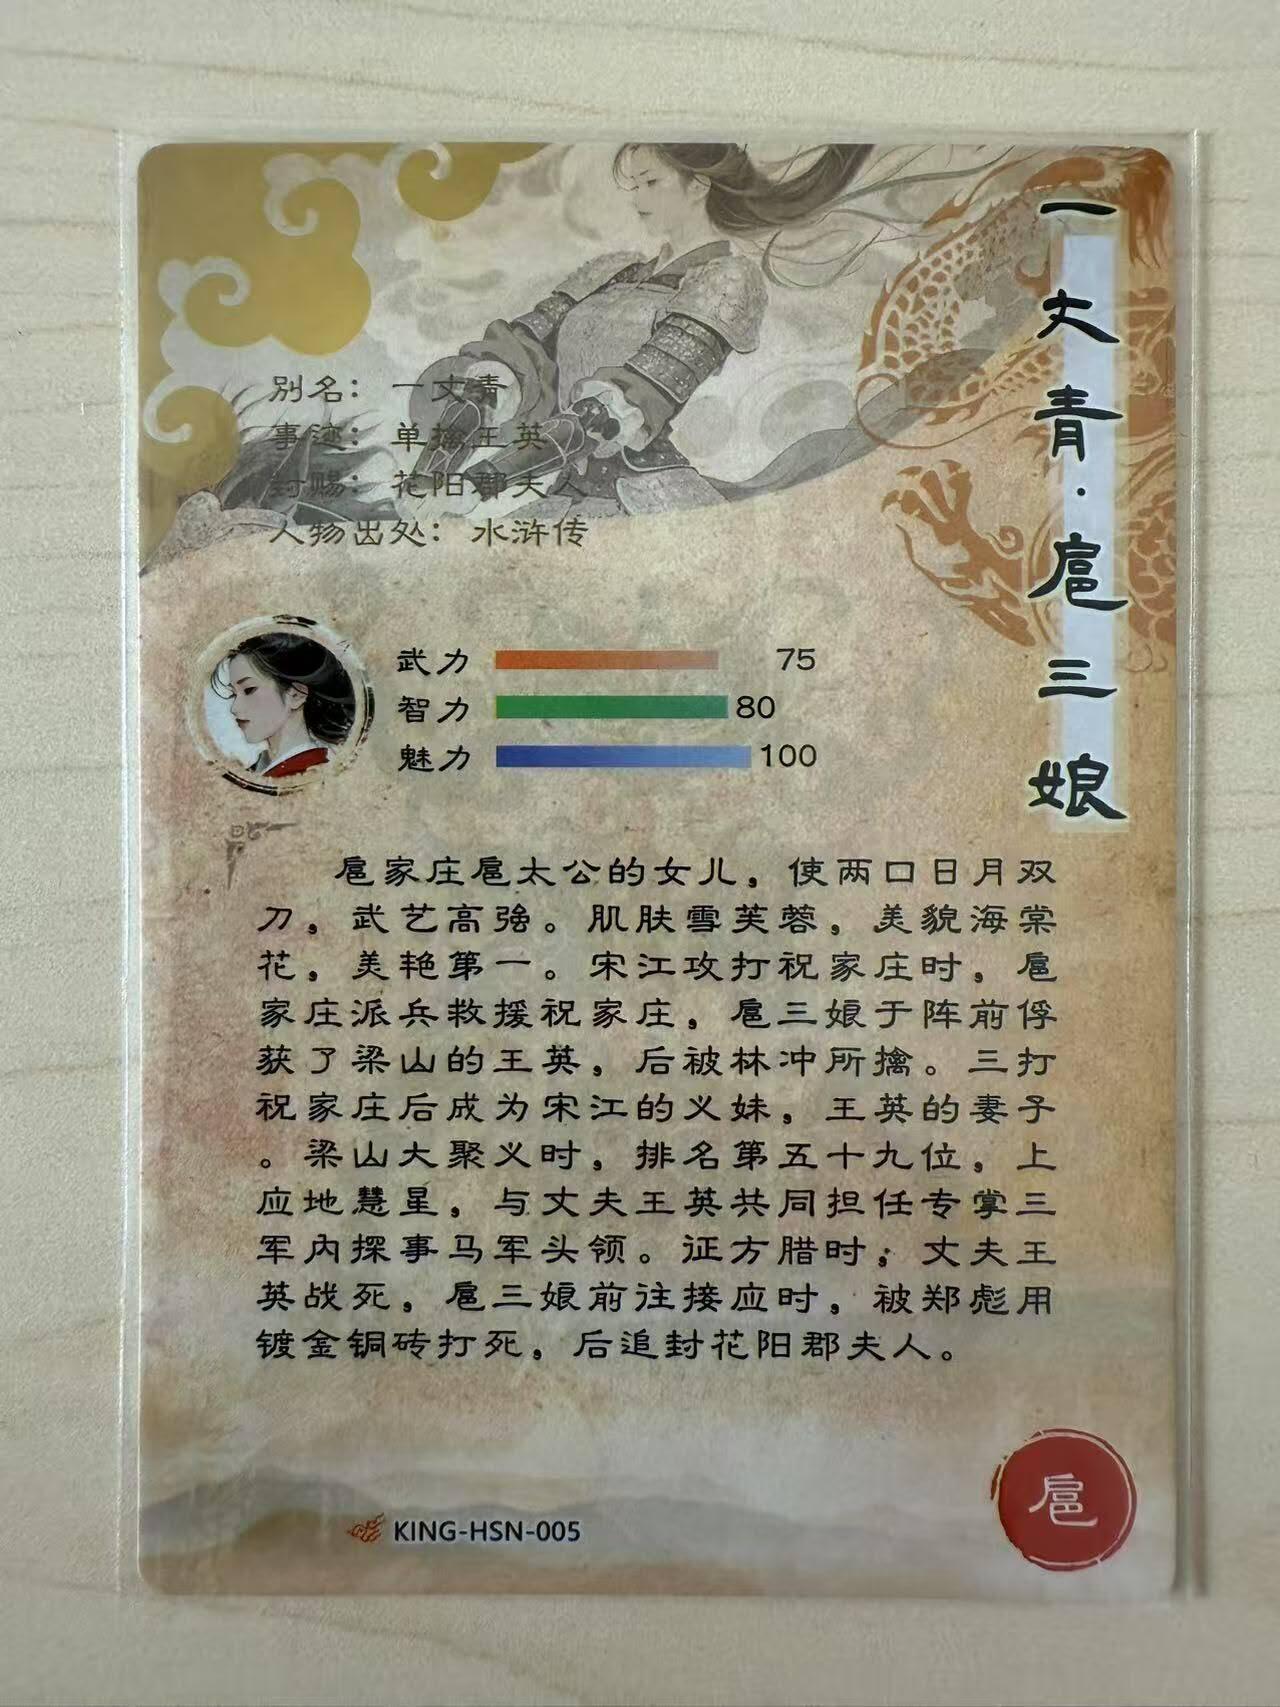 一丈青·扈三娘
别名： 一丈青
事迹： 单擒王英
封赐： 花阳郡夫人
人物出处： 水浒传
武力 75
智力 80
魅力 100
扈家庄扈太公的女儿，使两口日月双
刀，武艺高强。肌肤雪芙蓉，美貌海棠
花，美艳第一。宋江攻打祝家庄时，扈
家庄派兵救援祝家庄，扈三娘于阵前俘
获了梁山的王英，后被林冲所擒。三打
祝家庄后成为宋江的义妹，王英的妻子
。梁山大聚义时，排名第五十九位，上
应地慧星，与丈夫王英共同担任专掌三
军内探事马军头领。征方腊时，丈夫王
英战死，扈三娘前往接应时，被郑彪用
镀金铜砖打死，后追封花阳郡夫人。
KING-HSN-005
扈